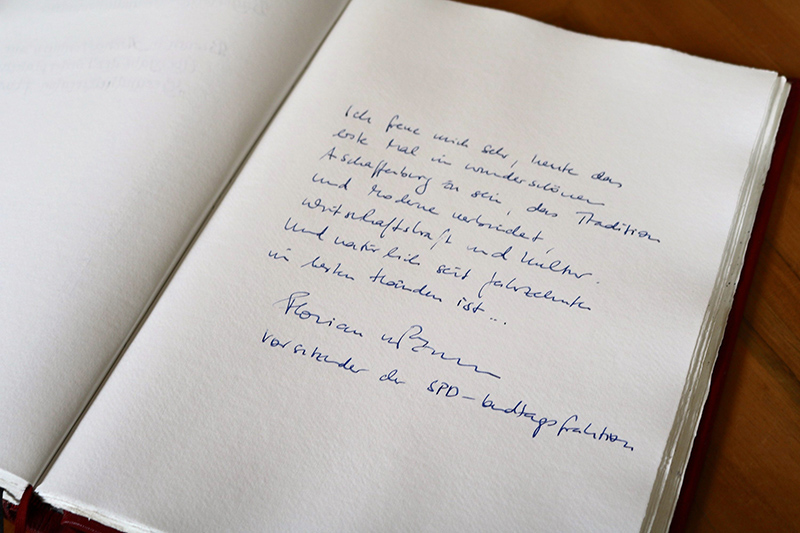 Ich freue mich sehr, heute das
erste Mal im wunderschönen
Aschaffenburg zu sein, das Tradition
und Moderne verbindet,
Wirtschaftskraft und Kultur.
Und natürlich seit Jahrzehnten
in besten Händen ist...
Florian
Vorsitzender der SPD-Landtagsfraktion